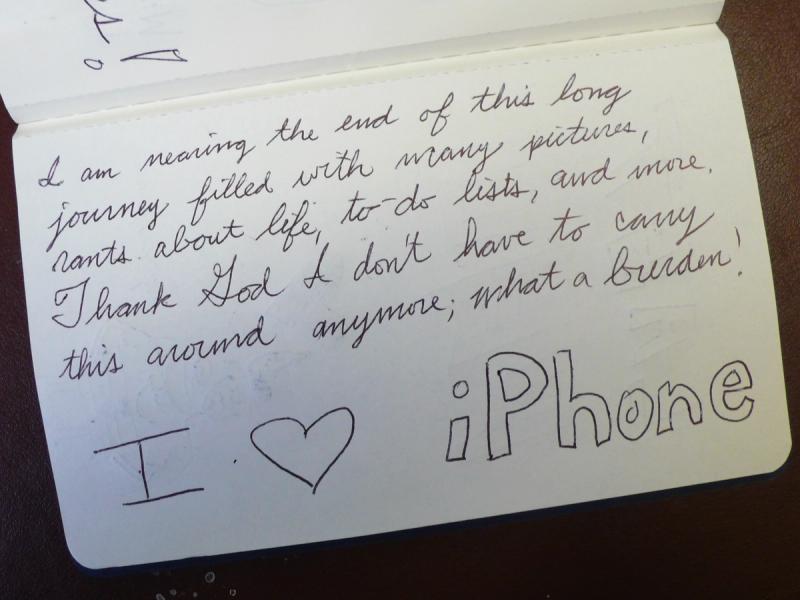 s!
I am nearing the end of this long
journey filled with many pictures,
rants about life, to-do lists, and more.
Thank God I don't have to carry
this around anymore; what a burden!
I ♡ iPhone